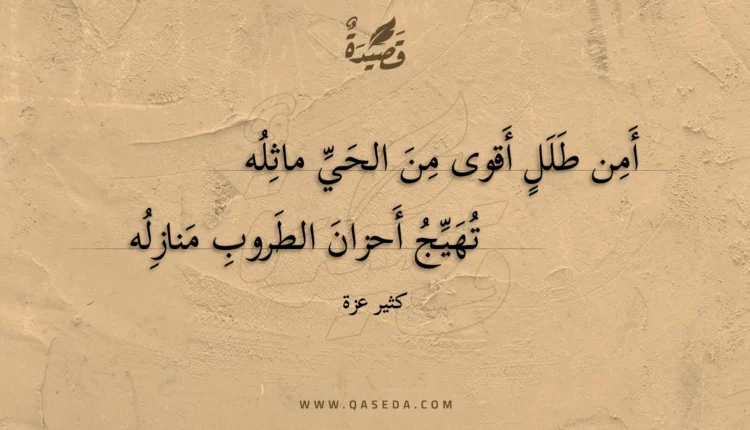 قَصِيدَةٌ
أَمِن طَلَلٍ أَقوى مِنَ الحَيِّ ماثِلُه
تُهَيِّجُ أَحزانَ الطَروبِ مَنازِلُه
كثير عزة
WWW.QASEDA.COM